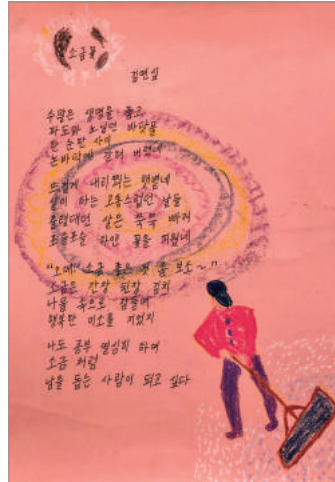 소금꽃
김연심
수많은 생명을 품고
파도와 노닐던 바닷물
한 순간 사이
논바닥에 갇혀 버렸네
뜨겁게 내리쬐는 햇볕에
살이 타는 고통스럽던 날들
출렁대던 살은 쭉쭉 빠져
포글포글 하얀 꽃을 피웠네
"오메~ 소금 좋은 것 좀 보소~"
소금은 간장 된장 김치
나물 속으로 잠들며
행복한 미소를 지었지
나도 공부 열심히 하며
소금 처럼
남을 돕는 사람이 되고 싶다